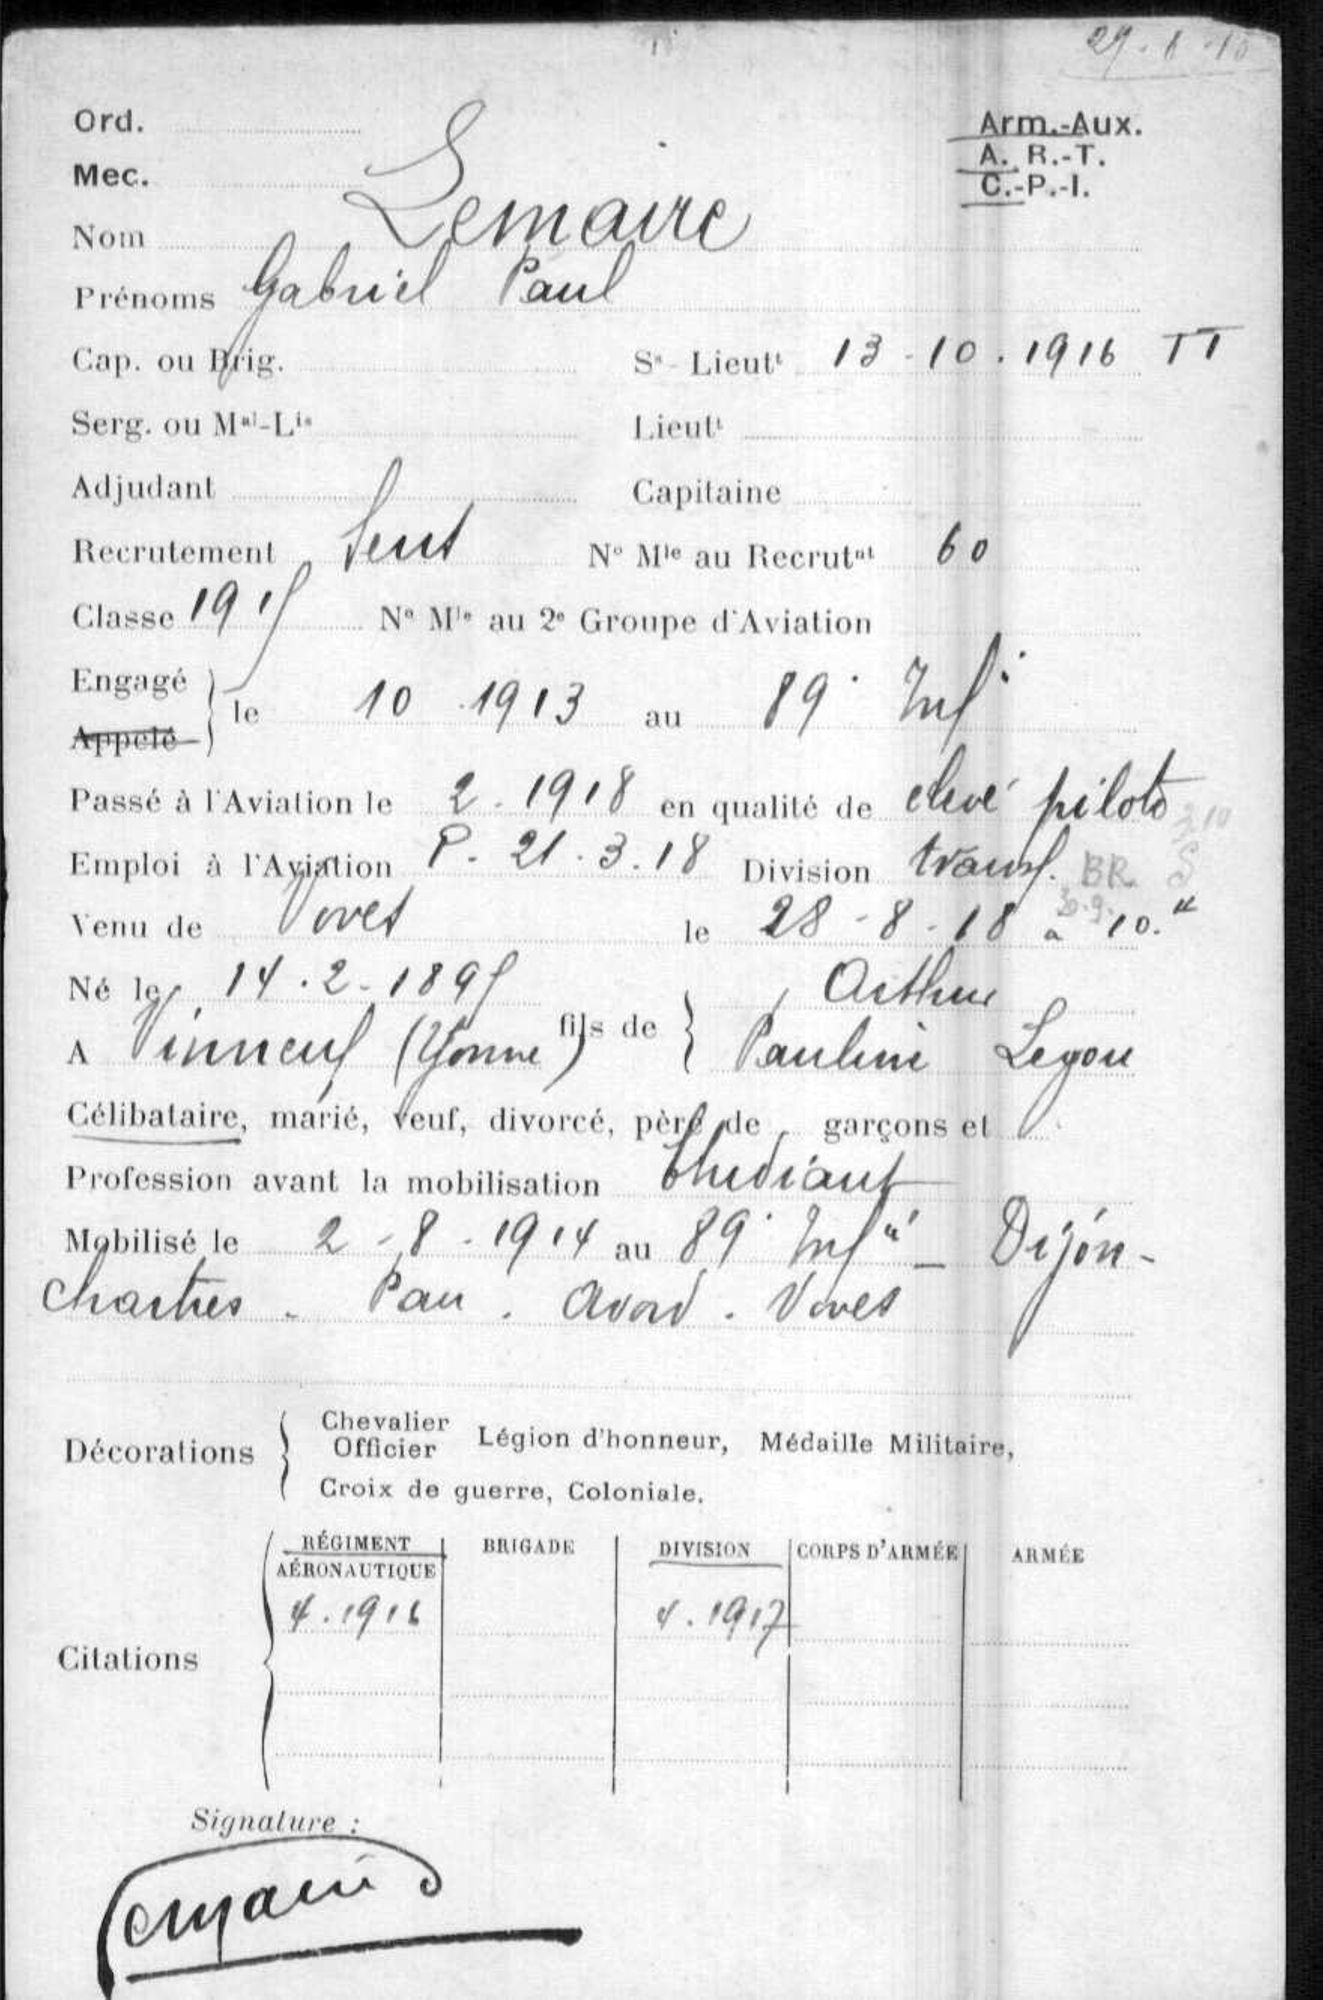 Ord.
Arm.-Aux.
Mec.
A. R.-T.
C.-P.-I.
Nom Lemaire
Prénoms Gabriel Paul
Cap. ou Brig. Sˢ-Lieutᵗ 13-10.1916 TT
Serg. ou Mᵃˡ-Lⁱˢ Lieutᵗ
Adjudant Capitaine
Recrutement Sens Nº Mˡᵉ au Recrutⁿᵗ 60
Classe 1915 Nº Mˡᵉ au 2ᵉ Groupe d'Aviation
Engagé
Appelé
le 10.1913 au 89ᵉ Infⁱᵉ
Passé à l'Aviation le 2.1918 en qualité de élevé pilote
Emploi à l'Aviation P. 21.3.18 Division transf. BR
Venu de Voves le 28-8-18 à 10.ᴴ
Né le 14.2.1895
fils de Arthur
A Vinneuf (Yonne) Pauline Legou
Célibataire, marié, veuf, divorcé, père de garçons et
Profession avant la mobilisation Etudiant
Mobilisé le 2-8-1914 au 89ᵉ Infⁱᵉ - Dijon-
Chartres - Pau. Avord. Voves
Décorations
Chevalier
Officier
Légion d'honneur, Médaille Militaire,
Croix de guerre, Coloniale.
Citations
RÉGIMENT BRIGADE DIVISION CORPS D'ARMÉE ARMÉE
AÉRONAUTIQUE
4.1916 4.1917
Signature :
Lemaire